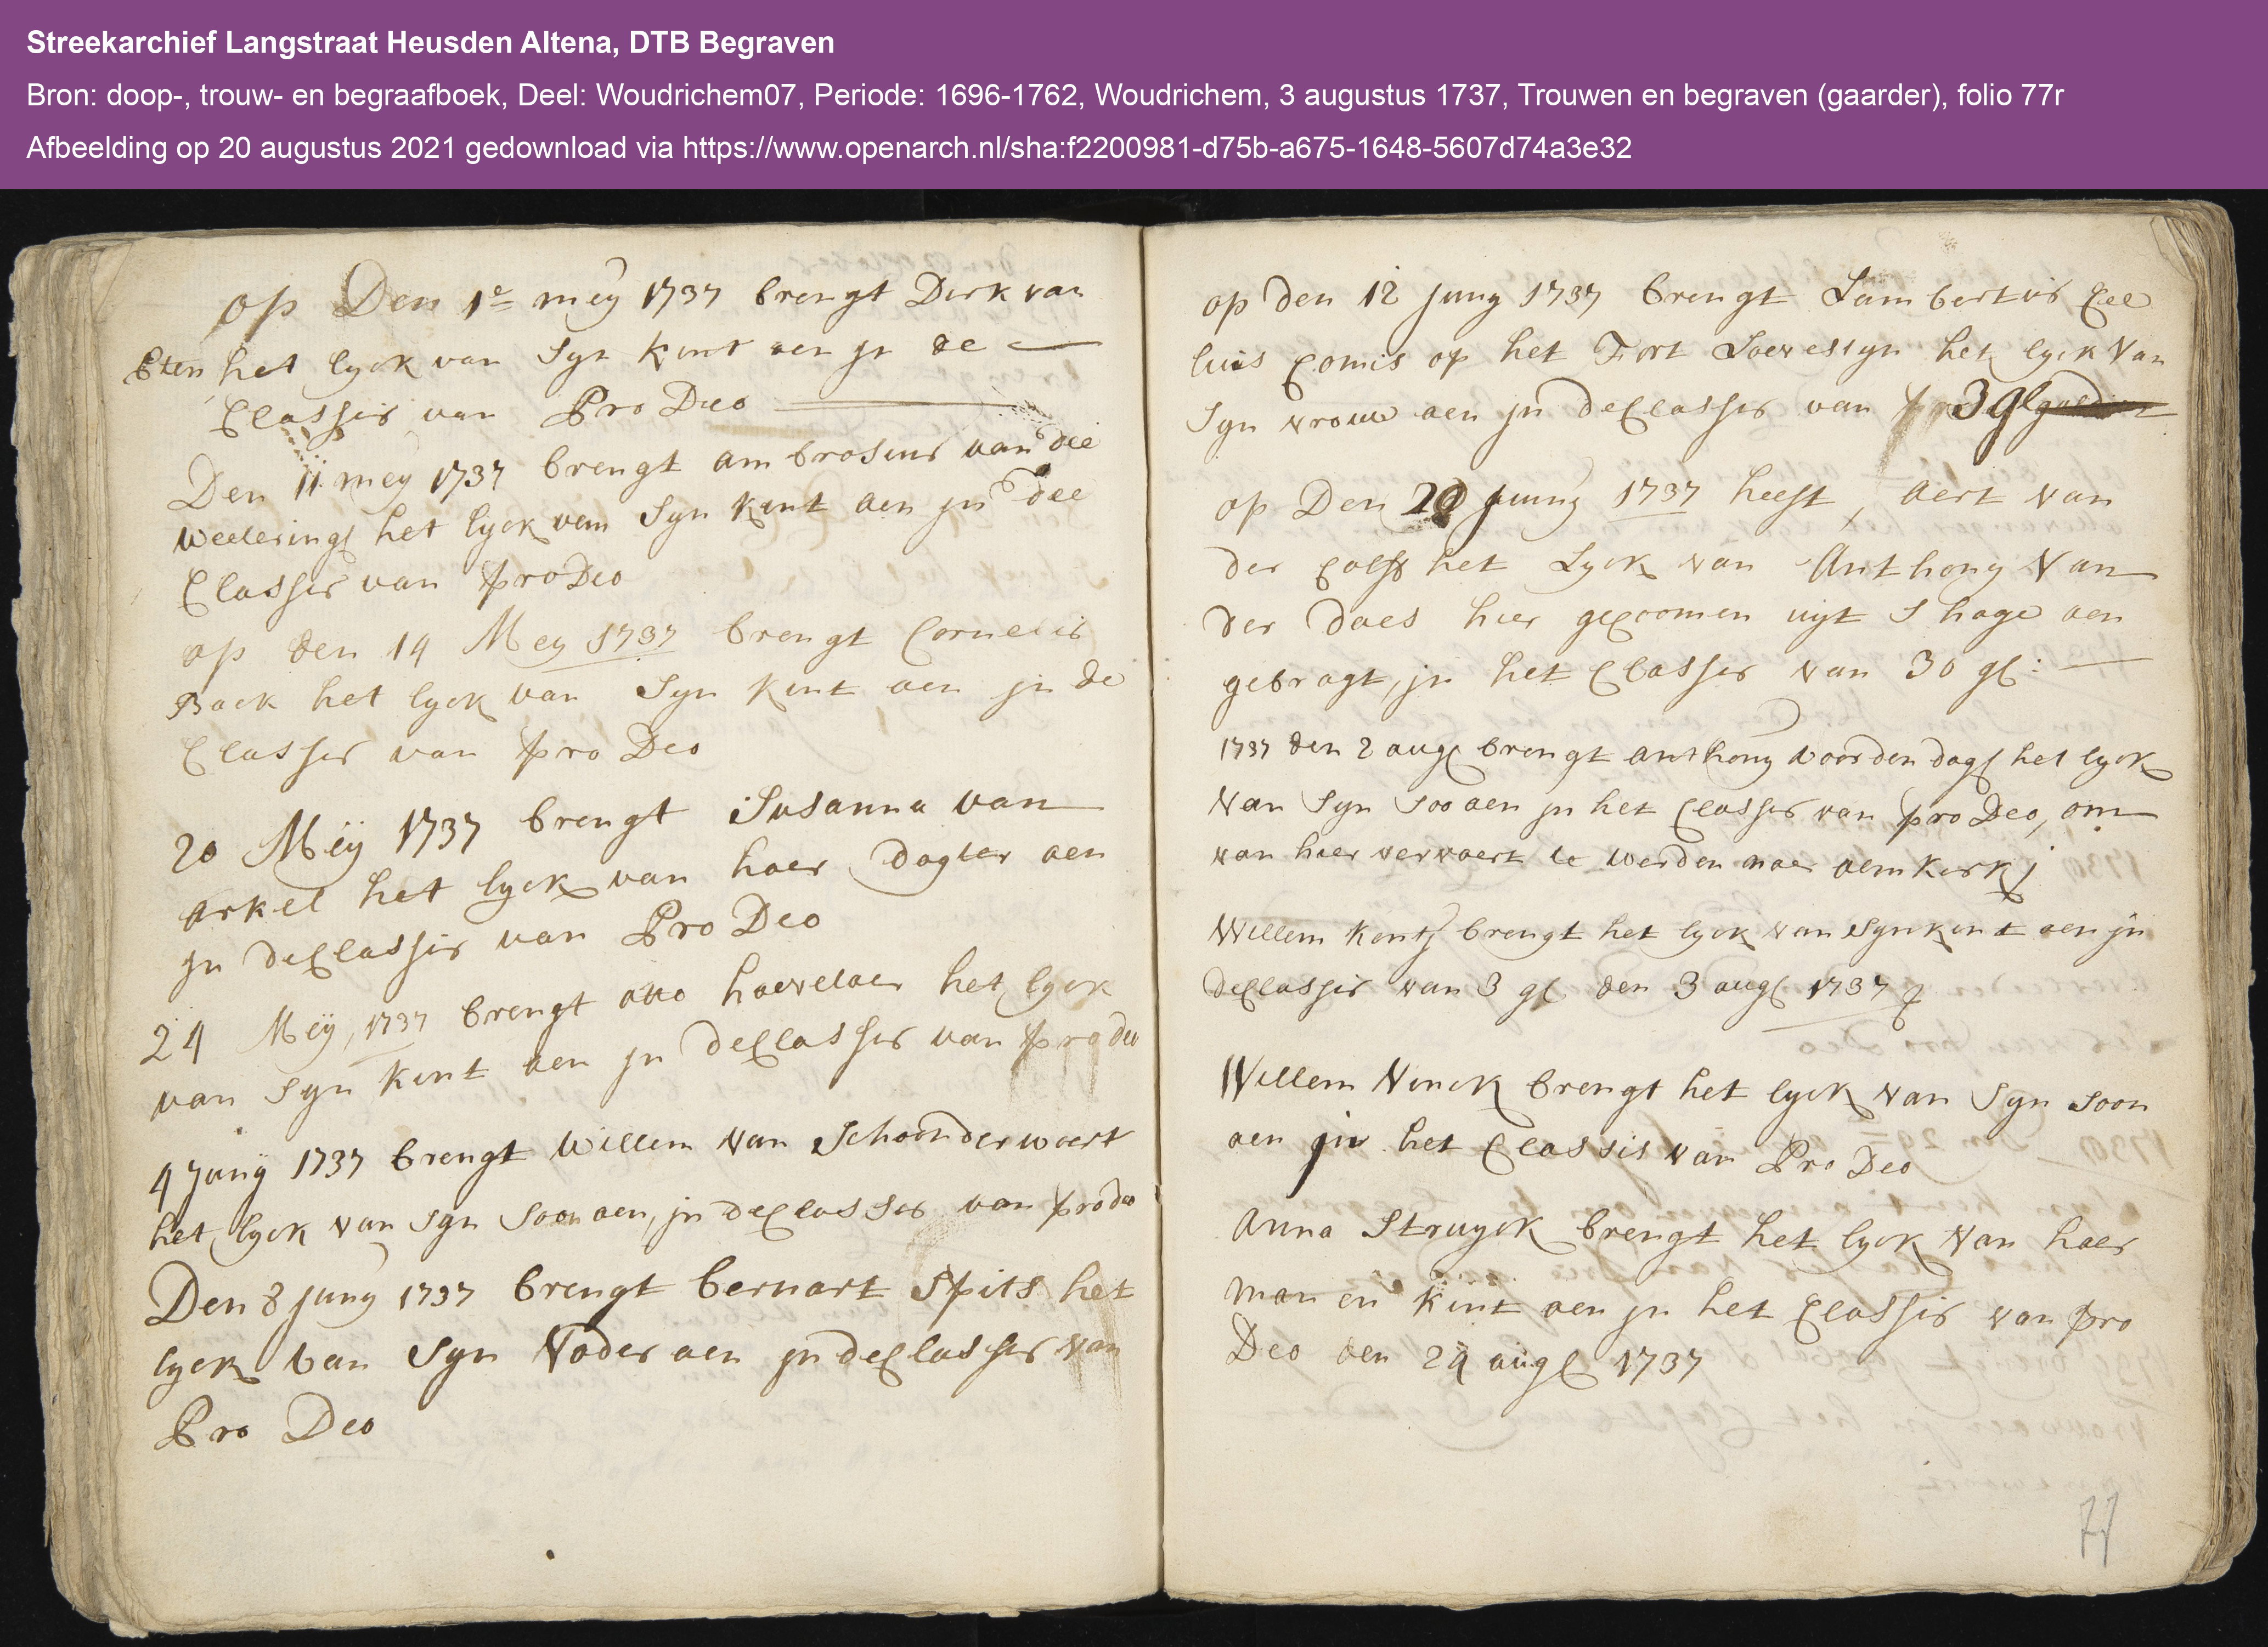 Streekarchief Langstraat Heusden Altena, DTB Begraven
Bron: doop-, trouw- en begraafboek, Deel: Woudrichem07, Periode: 1696-1762, Woudrichem, 3 augustus 1737, Trouwen en begraven (gaarder), folio 77r
Afbeelding op 20 augustus 2021 gedownload via https://www.openarch.nl/sha:f2200981-d75b-a675-1648-5607d74a3e32
op Den 1e meij 1737 brengt Dirk van
Eten het lyck van Syn kint aen jn de
Classis van Pro Deo
Den 11 mey 1737 brengt ambrosius van dee
weetering het lyck van Syn kint aen jn dee
Classis van pro Deo
op den 14 Mey 1737 brengt Cornelis
Back het lyck van Syn kint aen jn de
Classis van pro Deo
20 Meij 1737 brengt Susanna van
arkel het lyck van haer Dogter aen
jn de Classis van Pro Deo
24 Meij 1737 brengt otto haevelaer het lyck
van Syn kint aen jn de Classis van pro deo
4 Junij 1737 brengt Willem van Schoonderwoert
het lyck van Syn Soon aen, jn de Classis van pro deo
Den 8 juny 1737 brengt bernart Spits het
lyck van Syn Vader aen jn de Classis van
Pro Deo
op den 12 juny 1737 brengt Lambertus Cee
luis Comis op het Fort Loevesyn het lyck van
Syn vrouw aen jn de Classis van 3 gl
op Den 20 juny 1737 heeft, Aert van
der Colff het Lyck van Anthony van
der Does hier gecoomen uyt S hage aen
gebragt, jn het Classis van 30 gl:
1737 den 2 aug brengt anthony voordendag het lyck
van Syn Soo aen jn het Classis van pro Deo, om
van hier vervoert te werden naer aemkerk
Willem kent brengt het lyck van Syn kint aen jn
de Classis van 3 gl den 3 aug 1737
Willem Vinck brengt het lyck van Syn Soon
aen jn het Classis van Pro Deo
Anna Struyck brengt het lyck van haer
man en kint aen jn het Classis van pro
Deo den 24 aug 1737
77